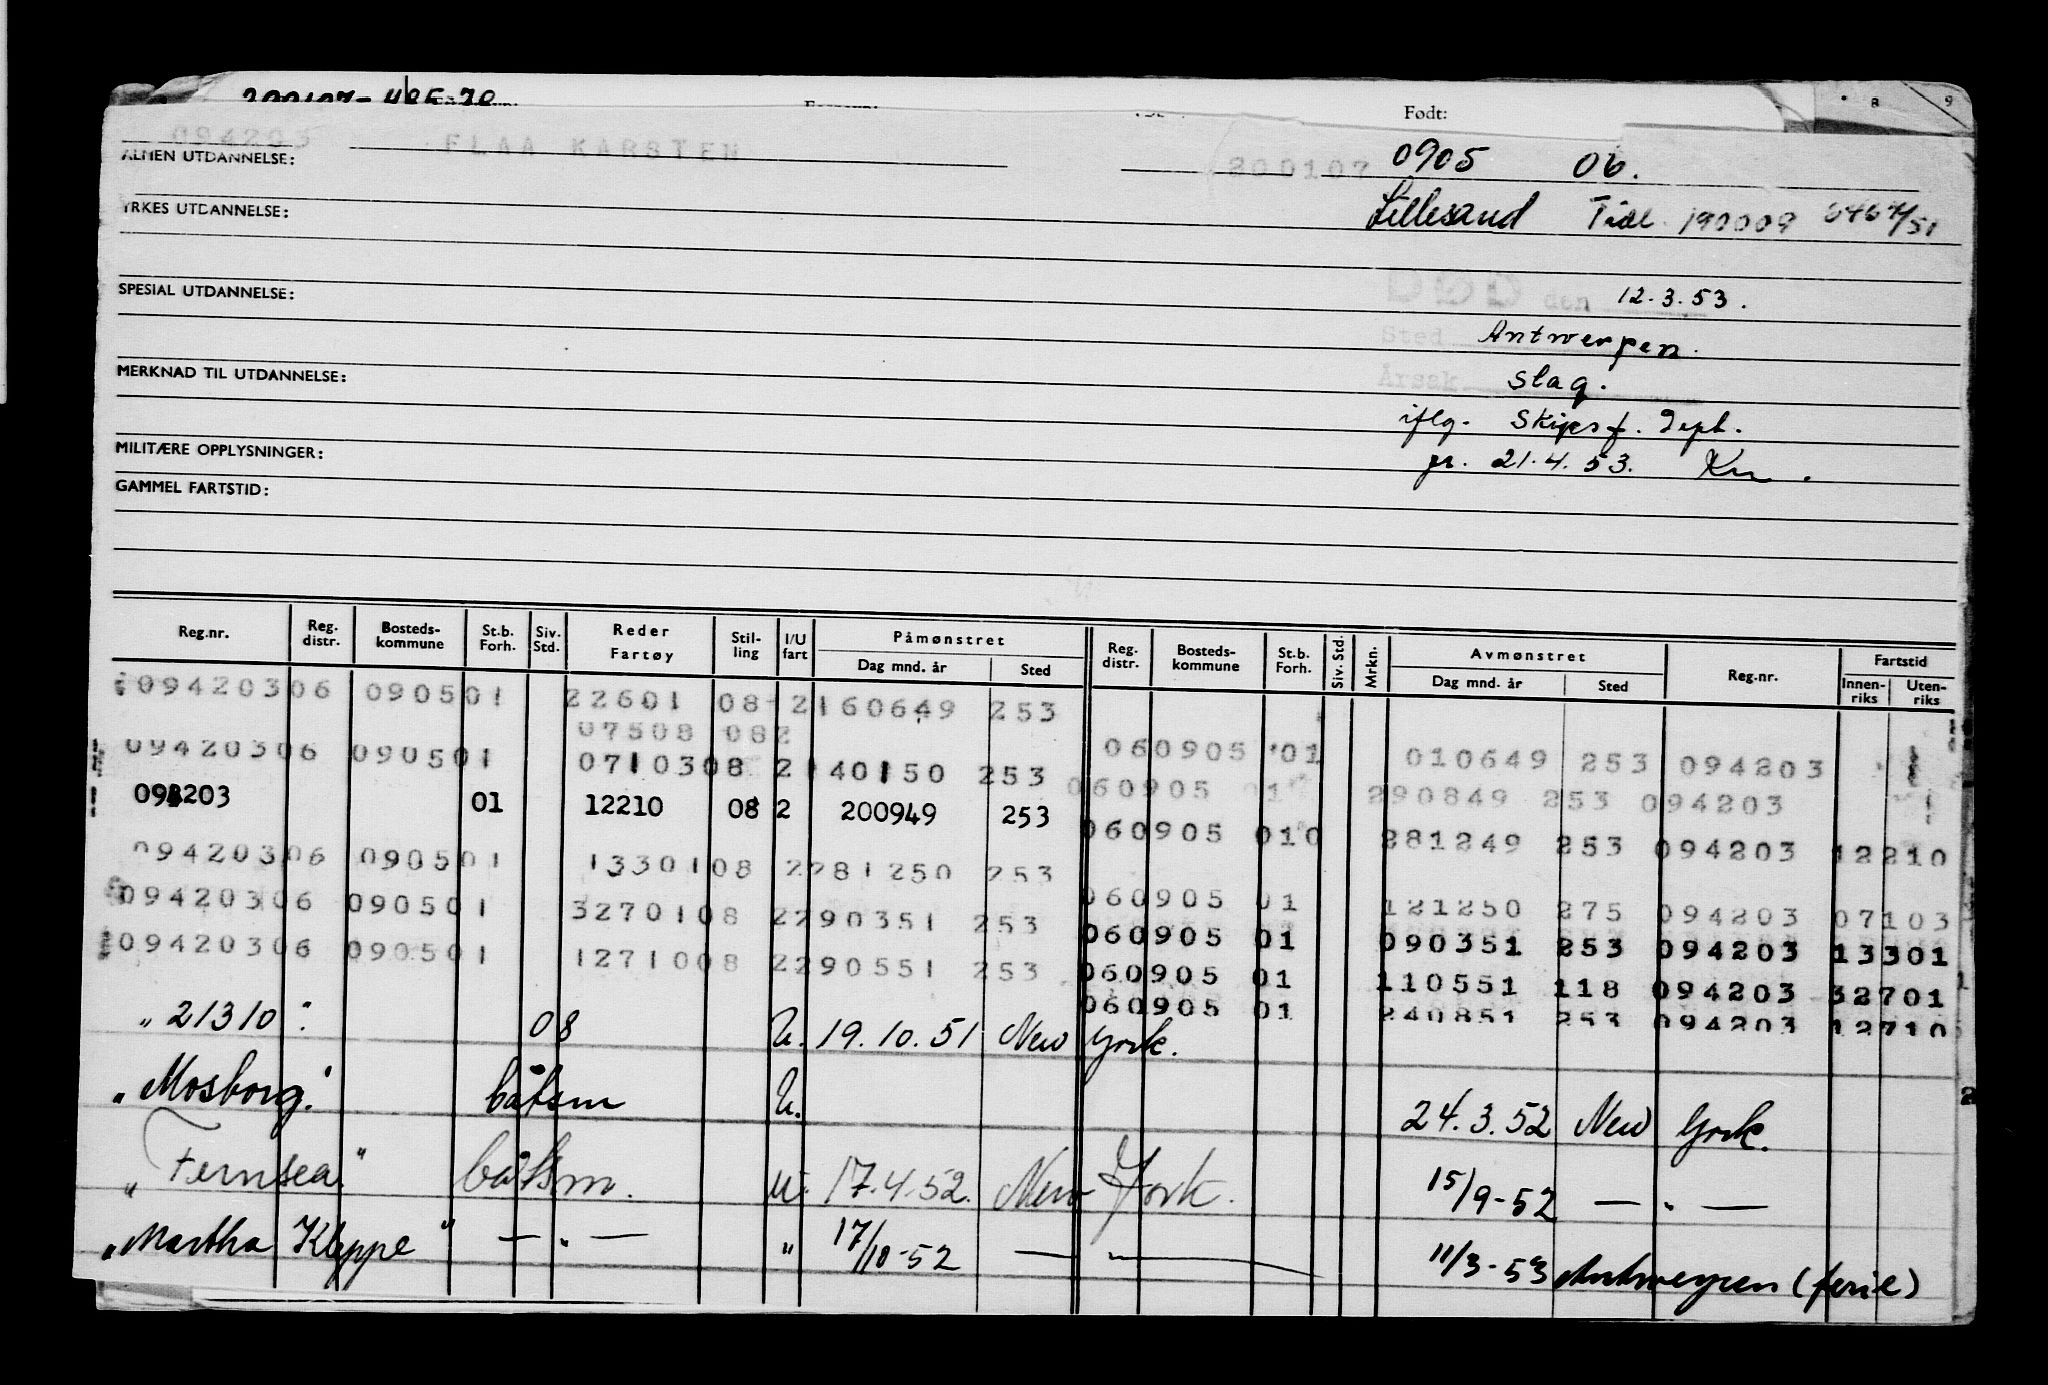 Født:
094203 FLAA KARSTEN 200107 0905 06.
ALMEN UTDANNELSE:
YRKES UTDANNELSE: Lillesand
SPESIAL UTDANNELSE: DØD den 12.3.53.
Sted Antwerpen.
MERKNAD TIL UTDANNELSE: Årsak slag.
iflg. Skipsf. Dept.
MILITÆRE OPPLYSNINGER: pr. 21.4.53.
GAMMEL FARTSTID:
Reg.nr. Reg. distr. Bosteds-kommune St.b. Forh. Siv. Std. Reder Fartøy Stil-ling I/U fart Påmønstret Dag mnd. år Sted Reg. distr. Bosteds-kommune St.b. Forh. Siv. Std. Mrkn. Avmønstret Dag mnd. år Sted Reg.nr. Fartstid Innen-riks Uten-riks
094203 06 0905 01 22601 08 2 160649 253
07508 082
060905 01 010649 253 094203
094203 06 0905 01 07103 08 2 140150 253
060905 01 290849 253 094203
01 12210 08 2 200949 253
060905 010 281249 253 094203 12210
094203 06 0905 01 13301 08 2 281250 253
060905 01 121250 275 094203 07103
094203 06 0905 01 32701 08 2 290351 253
060905 01 090351 253 094203 13301
094203 06 0905 01 12710 08 2 290551 253
060905 01 110551 118 094203 32701
060905 01 240851 253 094203 12710
" 21310 " 08 U. 19.10.51 New York.
"Mosborg" båtsm U. 24.3.52 New York.
"Fernsea" båtsm. U. 17.4.52. New York. 15/9-52 — " —
"Martha Kleppe" — " — " 17/10-52 — " — 11/3-53 Antwerpen (ferie)